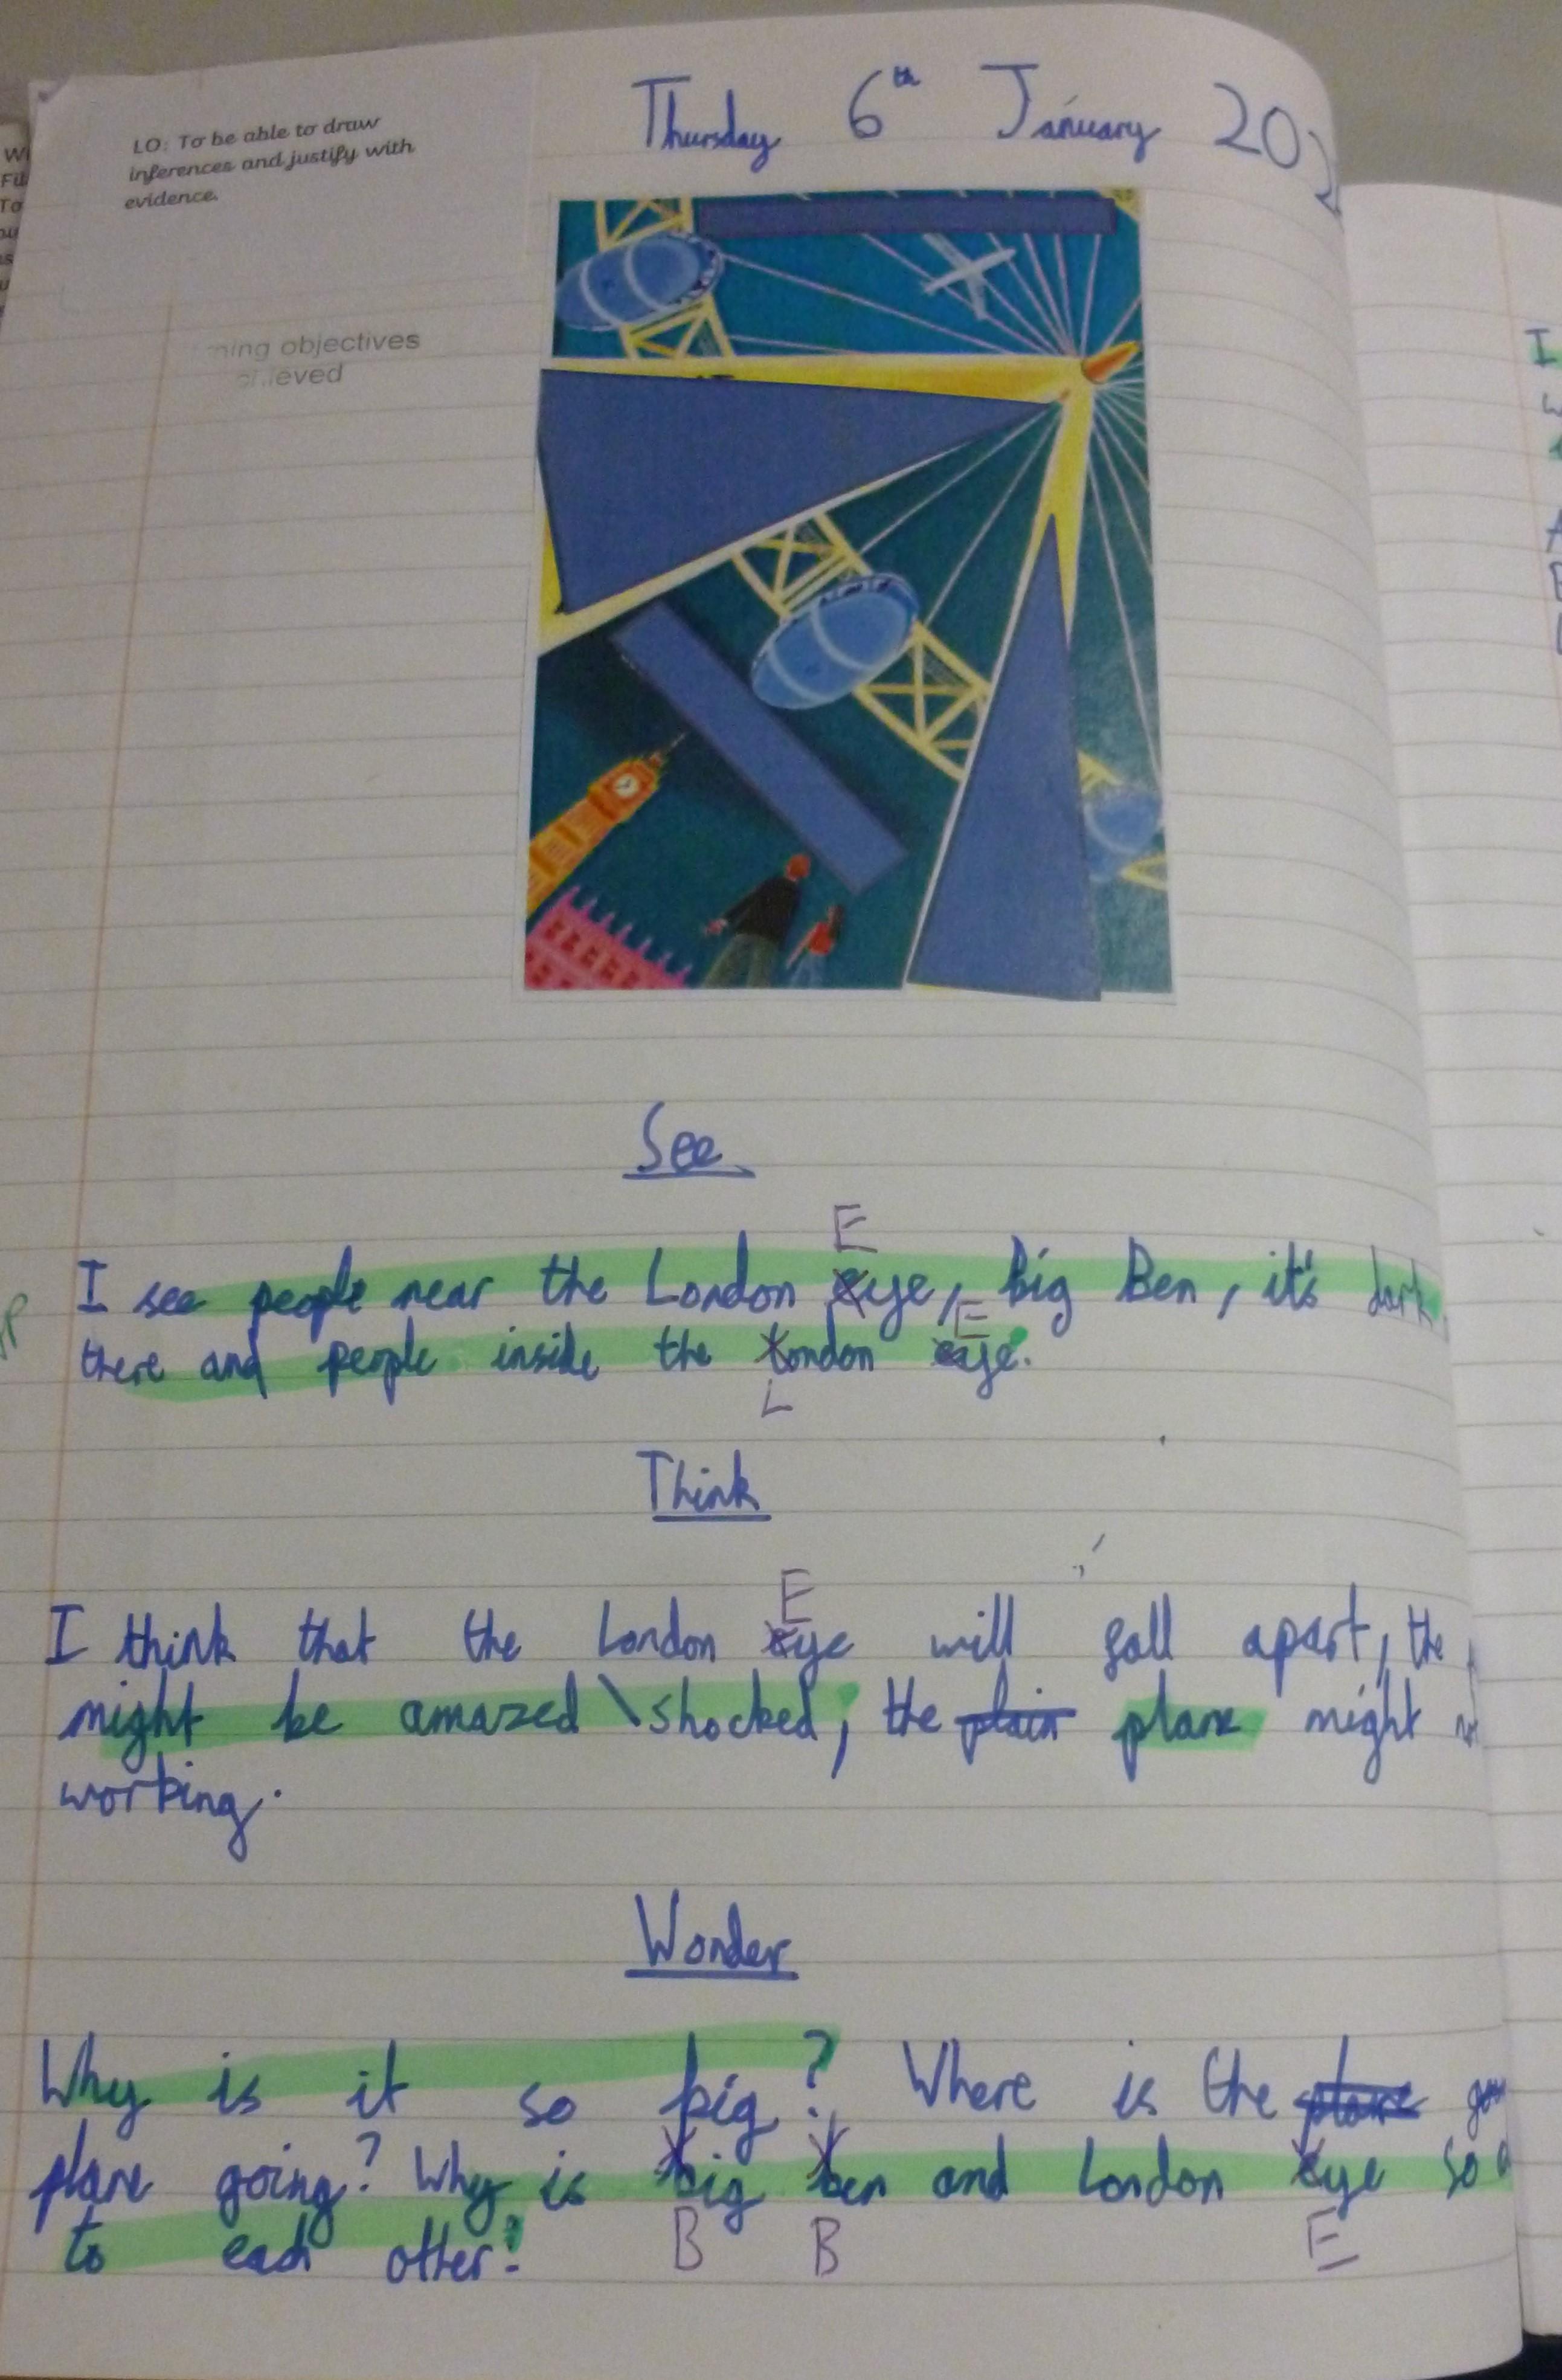 LO: To be able to draw
inferences and justify with
evidence.
Thursday 6th January 202
objectives
See
I see people near the London Eye, Big Ben, it's dark
there and people inside the London Eye.
Think
I think that the London Eye will fall apart, the
might be amazed \ shocked, the plain plane might
working.
Wonder
Why is it so big? Where is the plane
plane going? Why is Big Ben and London Eye so
to each otter?